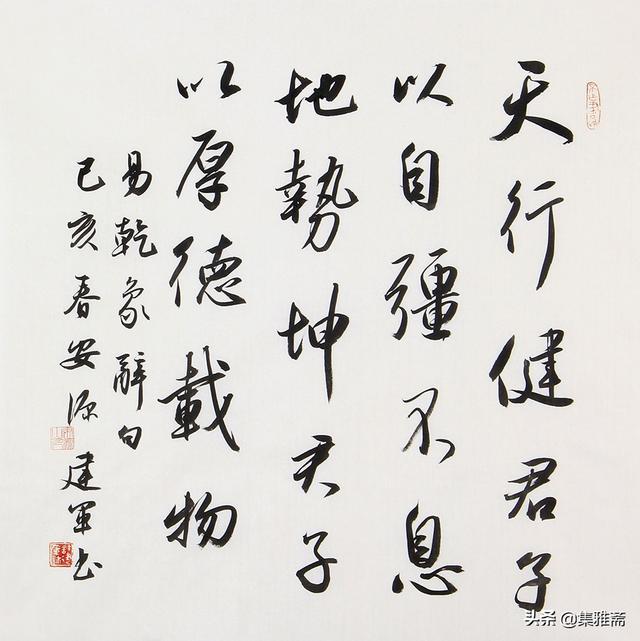 天行健君子
以自彊不息
地勢坤君子
以厚德載物
易乾象辭句
己亥春安源建軍书
头条 @集雅斋